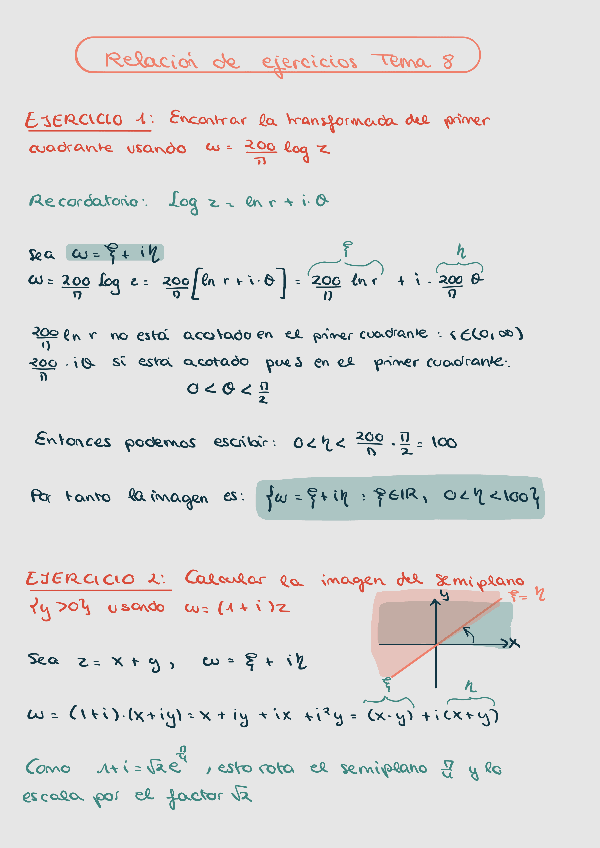 Relación de ejercicios Tema 8
EJERCICIO 1: Encontrar la transformada del primer
cuadrante usando ω = 200/π log z
Recordatorio: Log z = ln r + i·θ
Sea ω = ξ + iη
ξ η
ω = 200/π log z = 200/π [ln r + i·θ] = 200/π ln r + i · 200/π θ
200/π ln r no está acotado en el primer cuadrante : r∈(0,∞)
200/π · iθ sí está acotado pues en el primer cuadrante:
0 < θ < π/2
Entonces podemos escribir: 0 < η < 200/π · π/2 = 100
Por tanto la imagen es: {ω = ξ + iη : ξ∈IR, 0 < η < 100}
EJERCICIO 2: Calcular la imagen del semiplano
{y > 0} usando ω = (1 + i)z
y ξ = η
x
Sea z = x + y, ω = ξ + iη
ξ η
ω = (1+i)·(x+iy) = x + iy + ix + i²y = (x-y) + i(x+y)
Como 1+i = √2 e^π/4, esto rota el semiplano π/4 y lo
escala por el factor √2